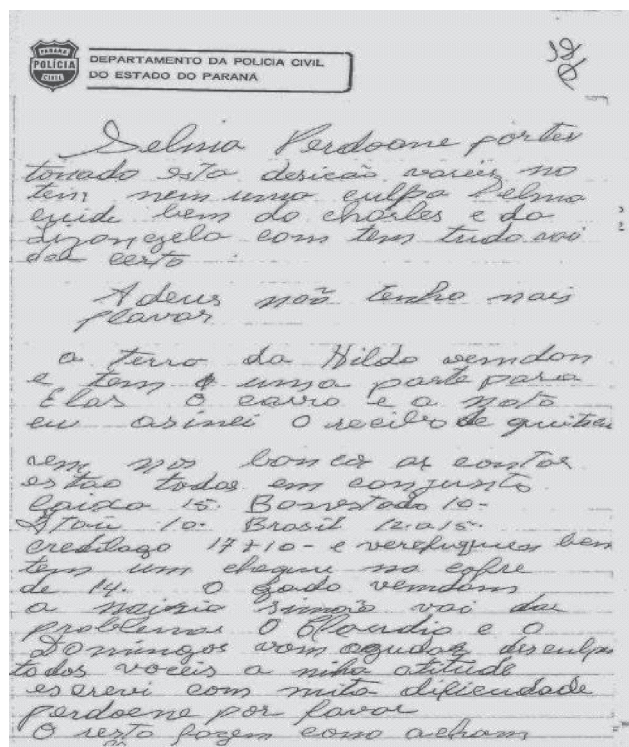 PARANÁ
POLÍCIA
CIVIL
DEPARTAMENTO DA POLICIA CIVIL
DO ESTADO DO PARANÁ
Selma Perdoane por ter
tomado esta desicão voceis no
tem nem uma culpa Selma
cuide bem do charles e da
com tem tudo vai
dar certo
Adeus não tenho mais
a terra da Hilda vendan
e tem uma parte para
Elas O carro e a moto
eu asinei o recibo de
vem nos bancos as contas
estão todas em conjunto
Caixa 15. Banestado 10-
Itau 10- Brasil 12.a15-
credilago 17+10- e verefiquem bem
tem um cheque no cofre
de 14. O gado vendam
a vai dar
problemas O Claudio e o
Domingos vam agudar desculpe
todos voceis a niha atitude
escrevi com mita dificudade
perdoene por favor
O resto fazem como acham